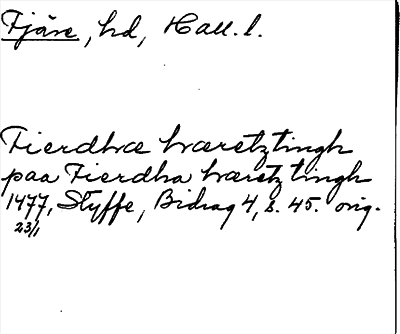 Fjäre, hd, Hall. l.
Fierdhræ hræretz tingh
paa Fierdha hæretz tingh
1477, Styffe, Bidrag 4, s. 45. orig.
23/1